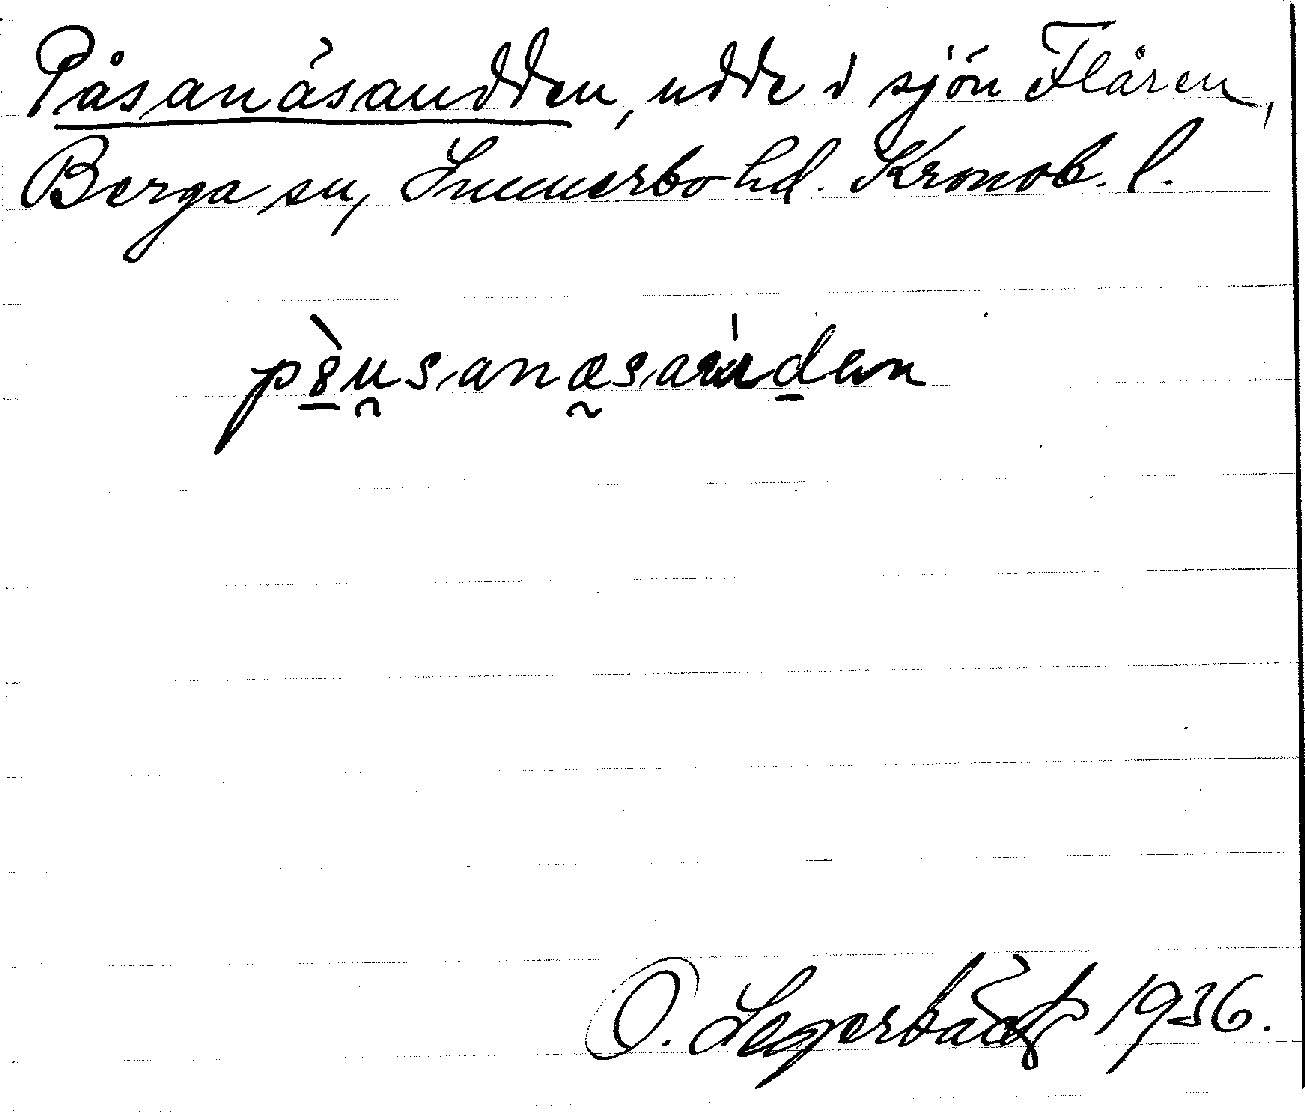 Påsanäsaudden, udde i sjön Flåren,
Berga sn, Sunnerbo hd. Kronob. l.
O. Lagerbäck 1936.